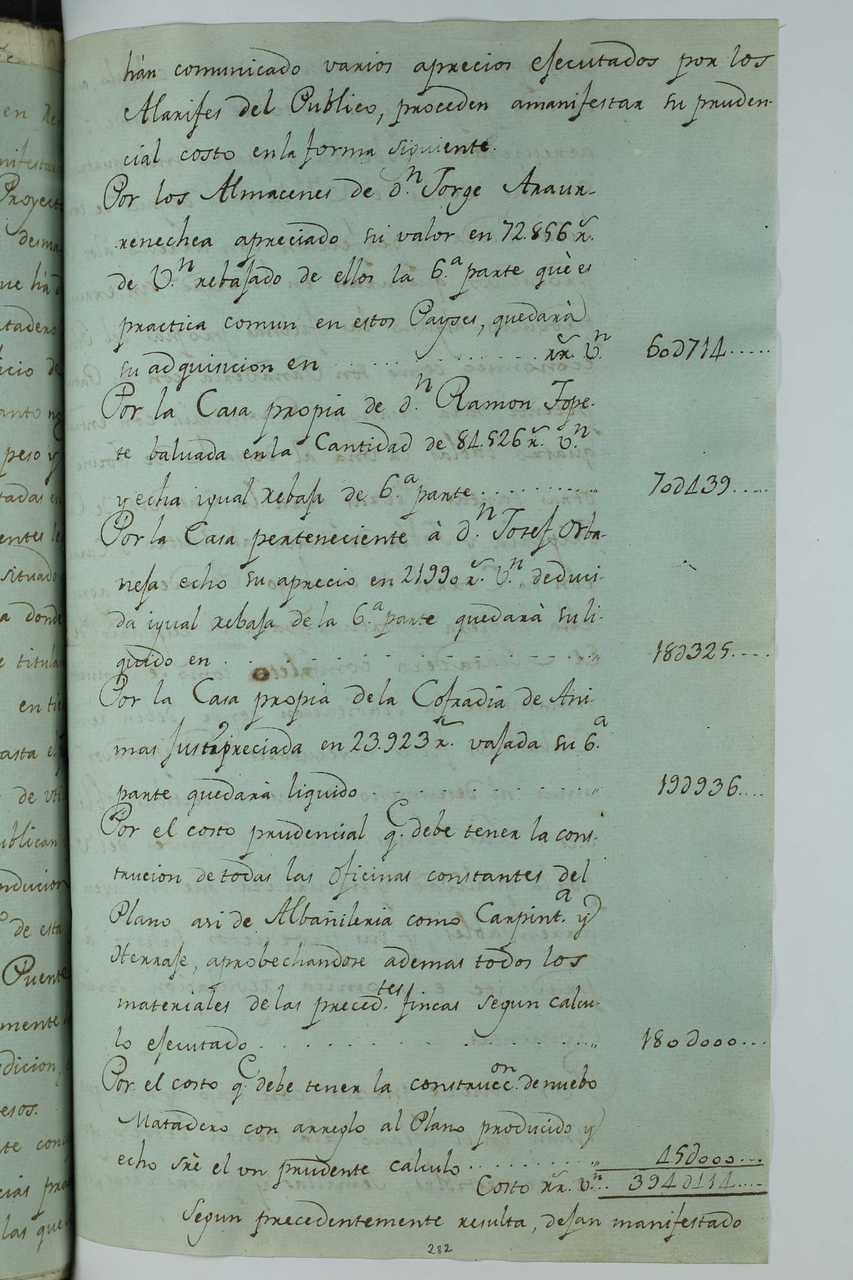 hán comunicado varios aprecios efecutados por los
Alarifes del Publico, proceden amanifestar su pruden-
cial costo enla forma siguiente.
Por los Almacenes de d.n Jorge Araur-
renechea apreciado su valor en 72.856 r.s
de V.n rebajado de ellos la 6.a parte què es
practica comun en estos Payses, quedarà
su adquisicion en . . . . . . . . . . rr.s V.n 60d714.....
Por la Casa propia de d.n Ramon Tope-
te baluada enla Cantidad de 84.526 r.s V.n
y echa igual rebaja de 6.a parte . . . . . . . . . . 70d439.....
Por la Casa perteneciente à d.n Josef Orba-
neja echo su aprecio en 21990 r.s V.n, deduci-
da igual rebaja de la 6.a parte quedarà su li-
quido en . . . . . . . . . . . . . 18d325....
Por la Casa propia dela Cofradia de Ani-
mas preciada en 23.923 r.s vajada su 6.a
parte quedarà liquido . . . . . . . . . . 19d936....
Por el costo prudencial q.e debe tener la cons-
trucion de todas las oficinas constantes del
Plano asi de Albañileria como Carpint.a y
Herraje, aprobechandose ademas todos los
materiales de las preced.tes fincas segun calcu-
lo efecutado . . . . . . . . . . . . . 180d000...
Por el costo q.e debe tener la construcc.on denuebo
Matadero con arreglo al Plano producido y
echo sre el un prudente calculo . . . . . . . . . 45d000...
Costo rr.s V.n... 394d414....
Segun precedentemente resulta, dejan manifestado
282